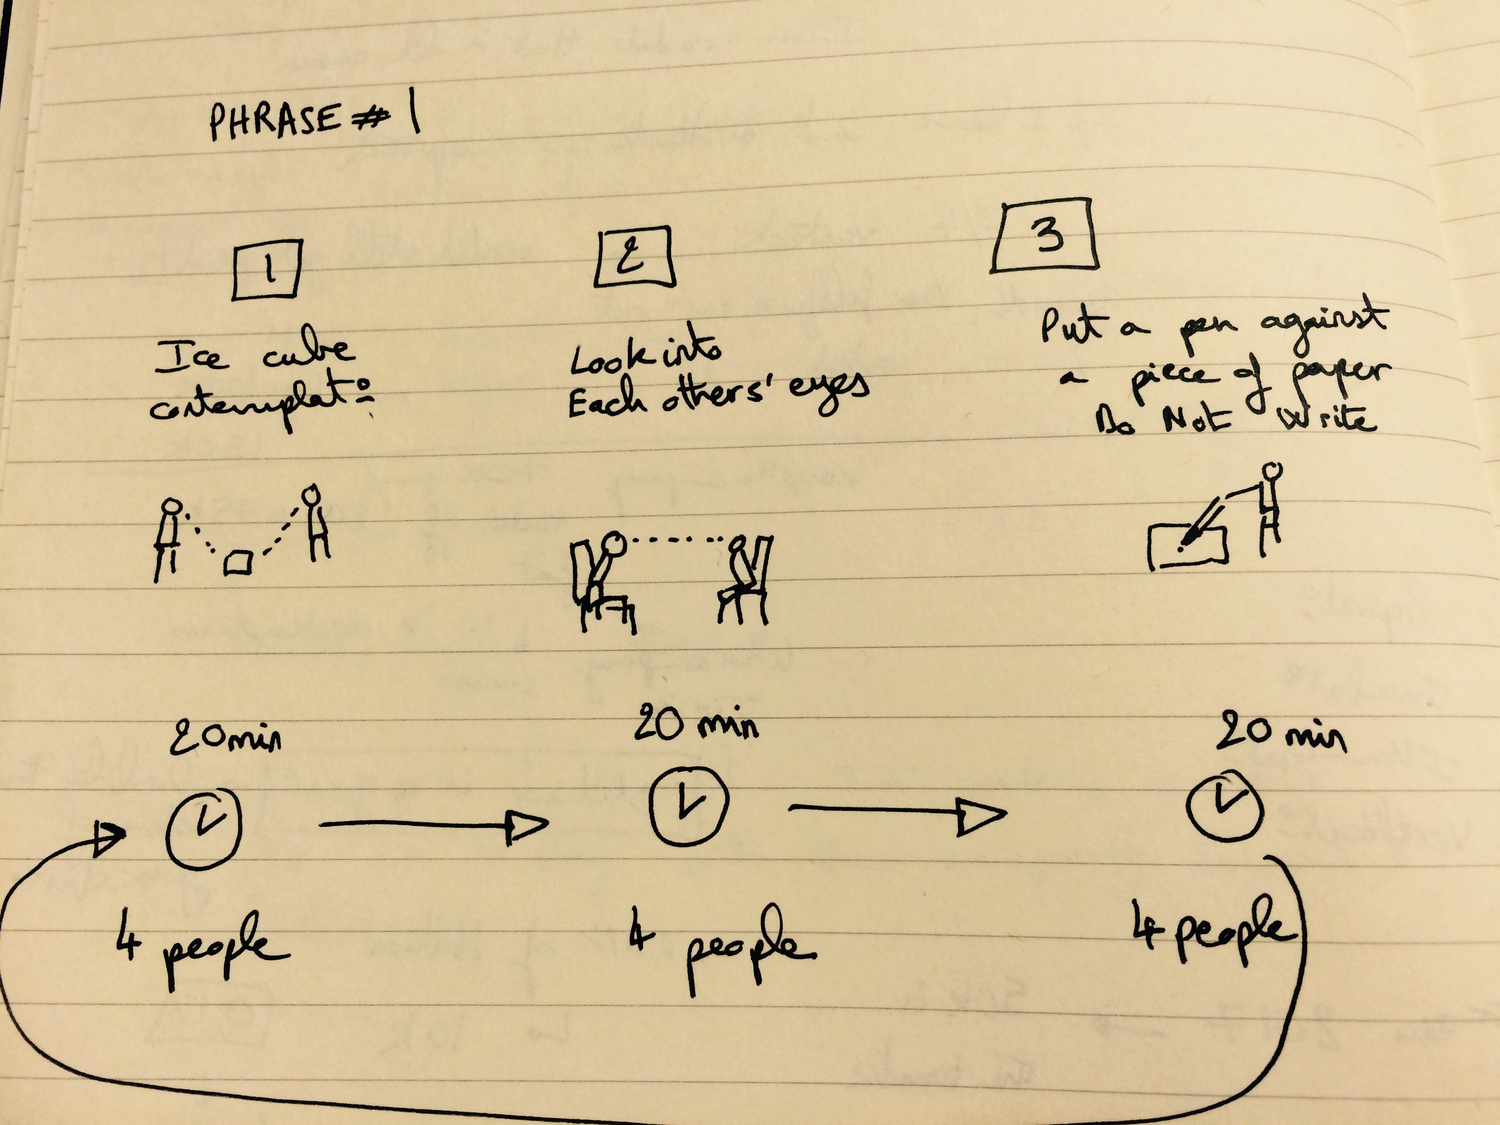 PHRASE # 1
1
2
3
Ice cube
Look into
Each others' eyes
Put a pen against
a piece of paper
Do Not Write
20min
20 min
20 min
4 people
4 people
4 people